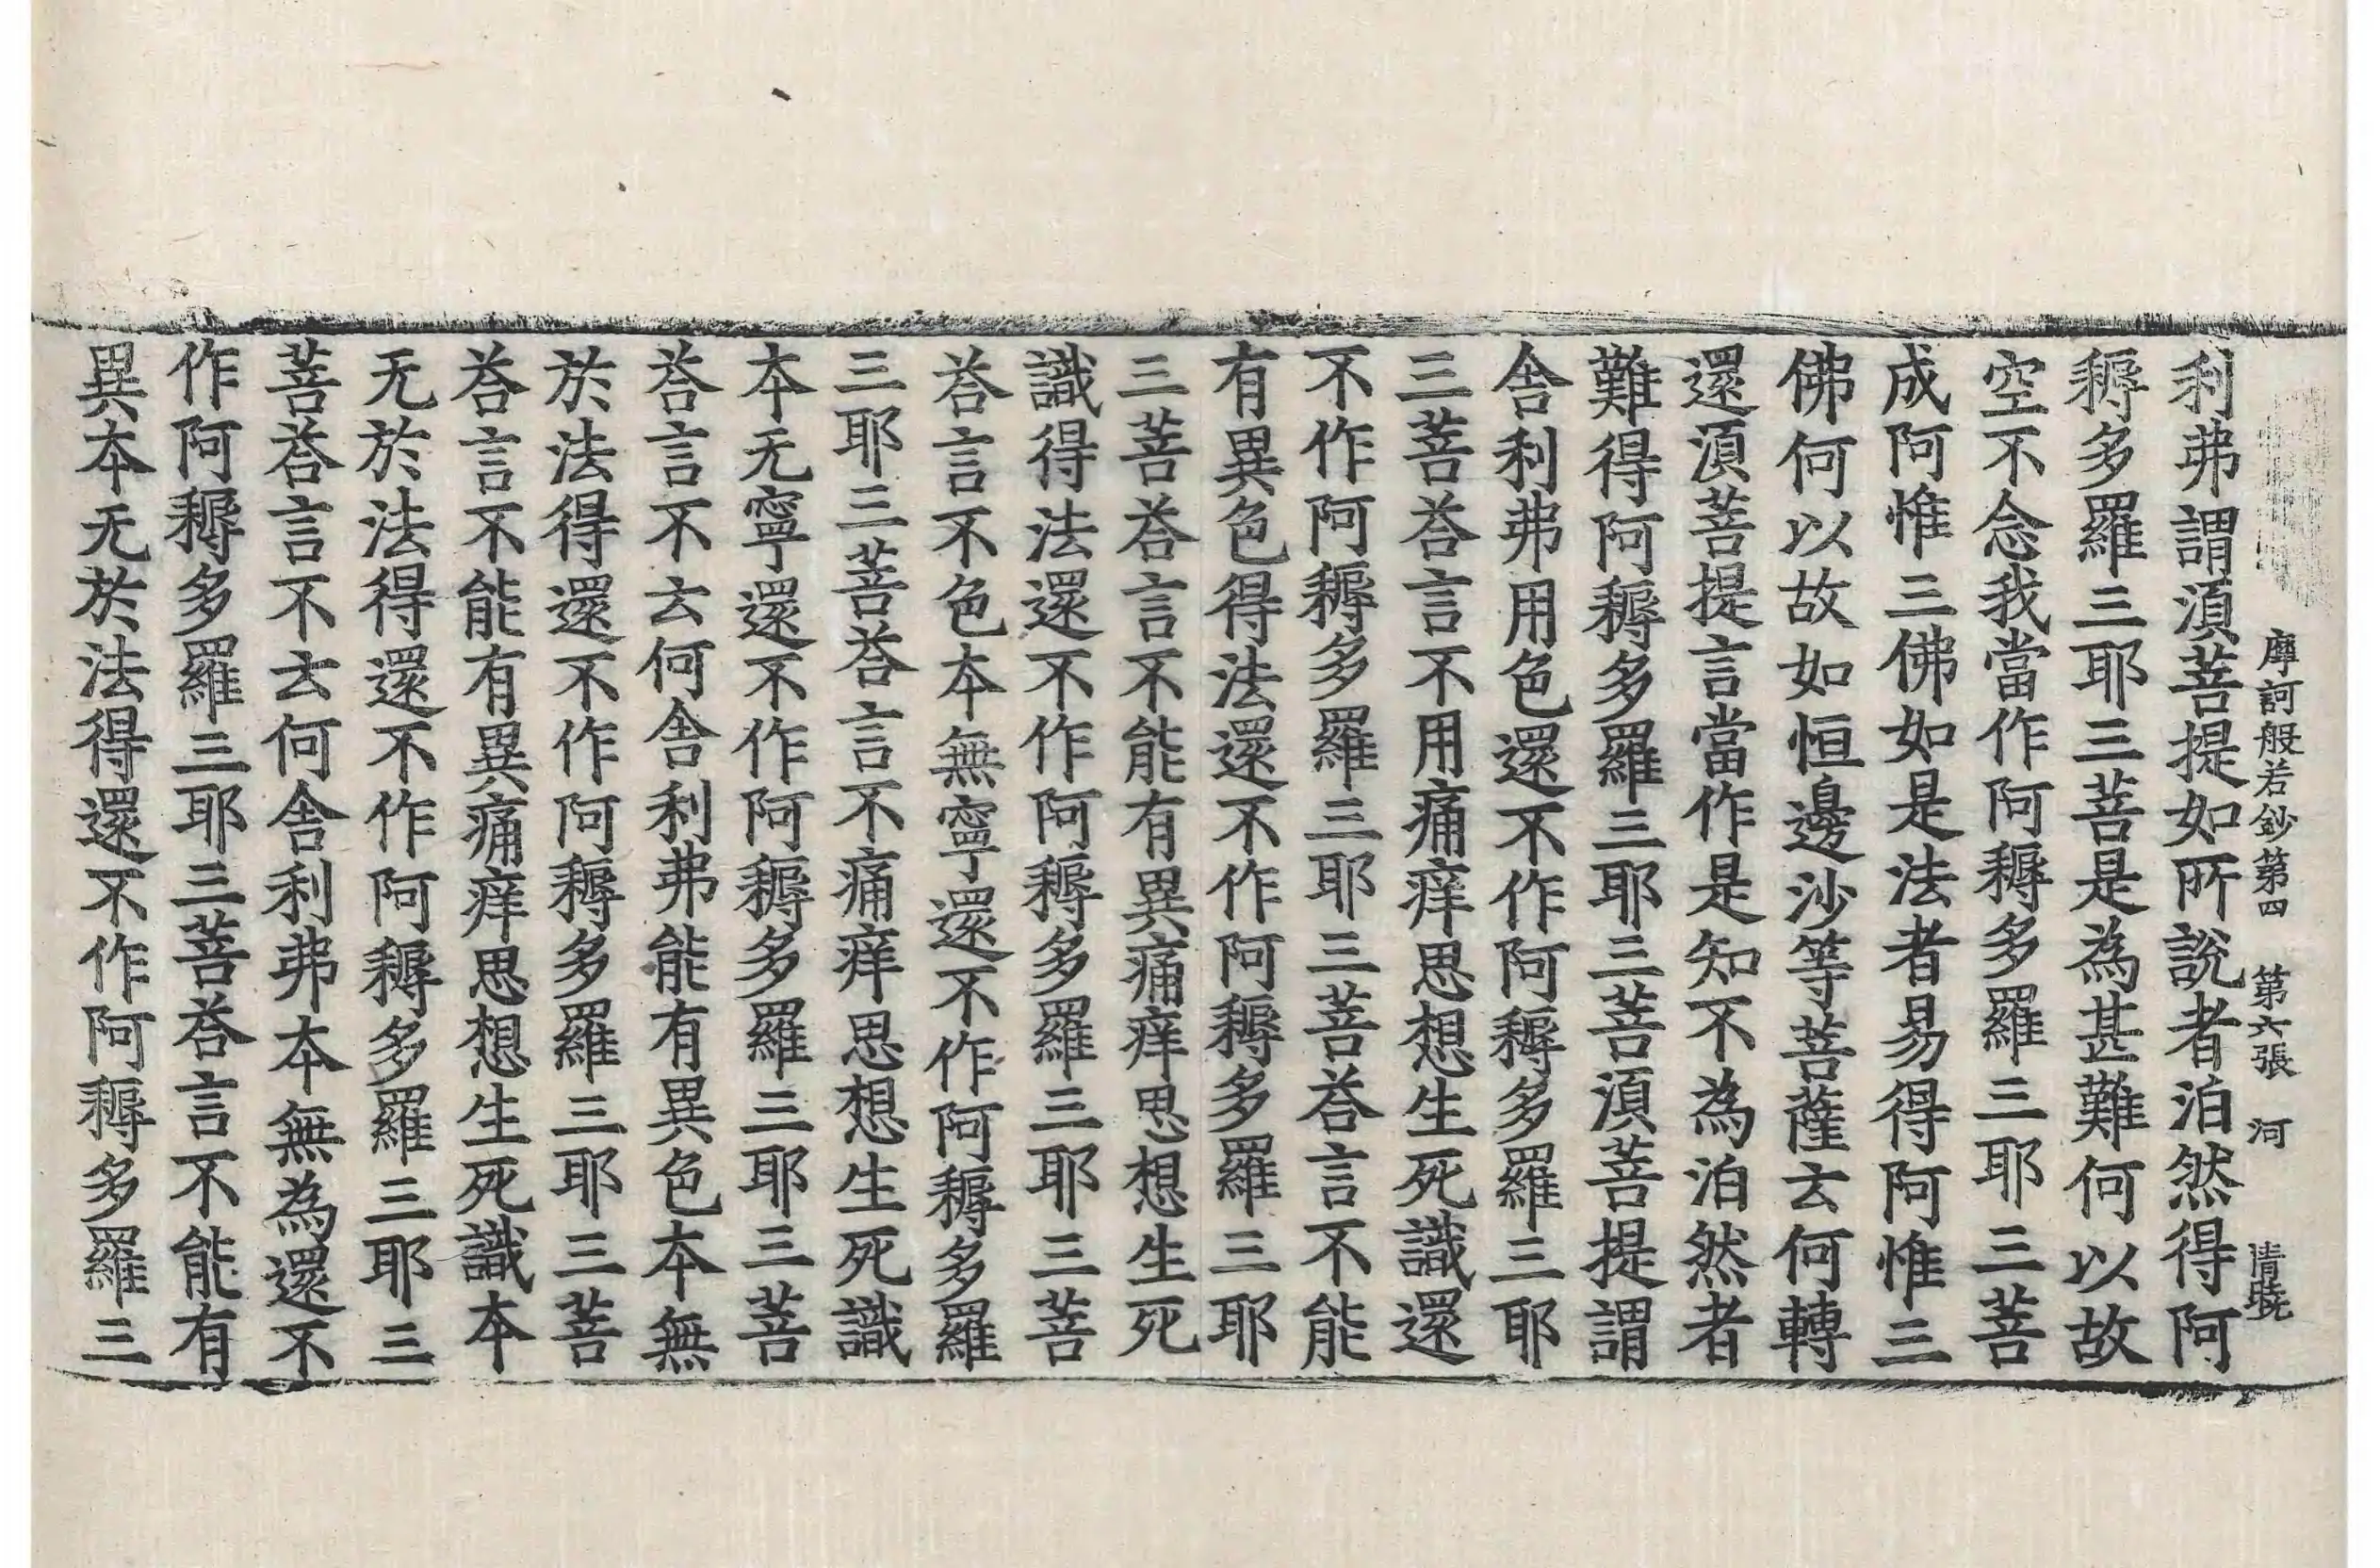 摩訶般若鈔第四 第六張 河 清曉
利弗謂湏菩提如所說者泊然得阿
耨多羅三耶三菩是為甚難何以故
空不念我當作阿耨多羅三耶三菩
成阿惟三佛如是法者易得阿惟三
佛何以故如恒邊沙等菩薩云何轉
還湏菩提言當作是知不為泊然者
難得阿耨多羅三耶三菩湏菩提謂
舍利弗用色還不作阿耨多羅三耶
三菩荅言不用痛痒思想生死識還
不作阿耨多羅三耶三菩荅言不能
有異色得法還不作阿耨多羅三耶
三菩荅言不能有異痛痒思想生死
識得法還不作阿耨多羅三耶三菩
荅言不色本無寧還不作阿耨多羅
三耶三菩荅言不痛痒思想生死識
本无寧還不作阿耨多羅三耶三菩
荅言不云何舍利弗能有異色本無
於法得還不作阿耨多羅三耶三菩
荅言不能有異痛痒思想生死識本
无於法得還不作阿耨多羅三耶三
菩荅言不云何舍利弗本無為還不
作阿耨多羅三耶三菩荅言不能有
異本无於法得還不作阿耨多羅三